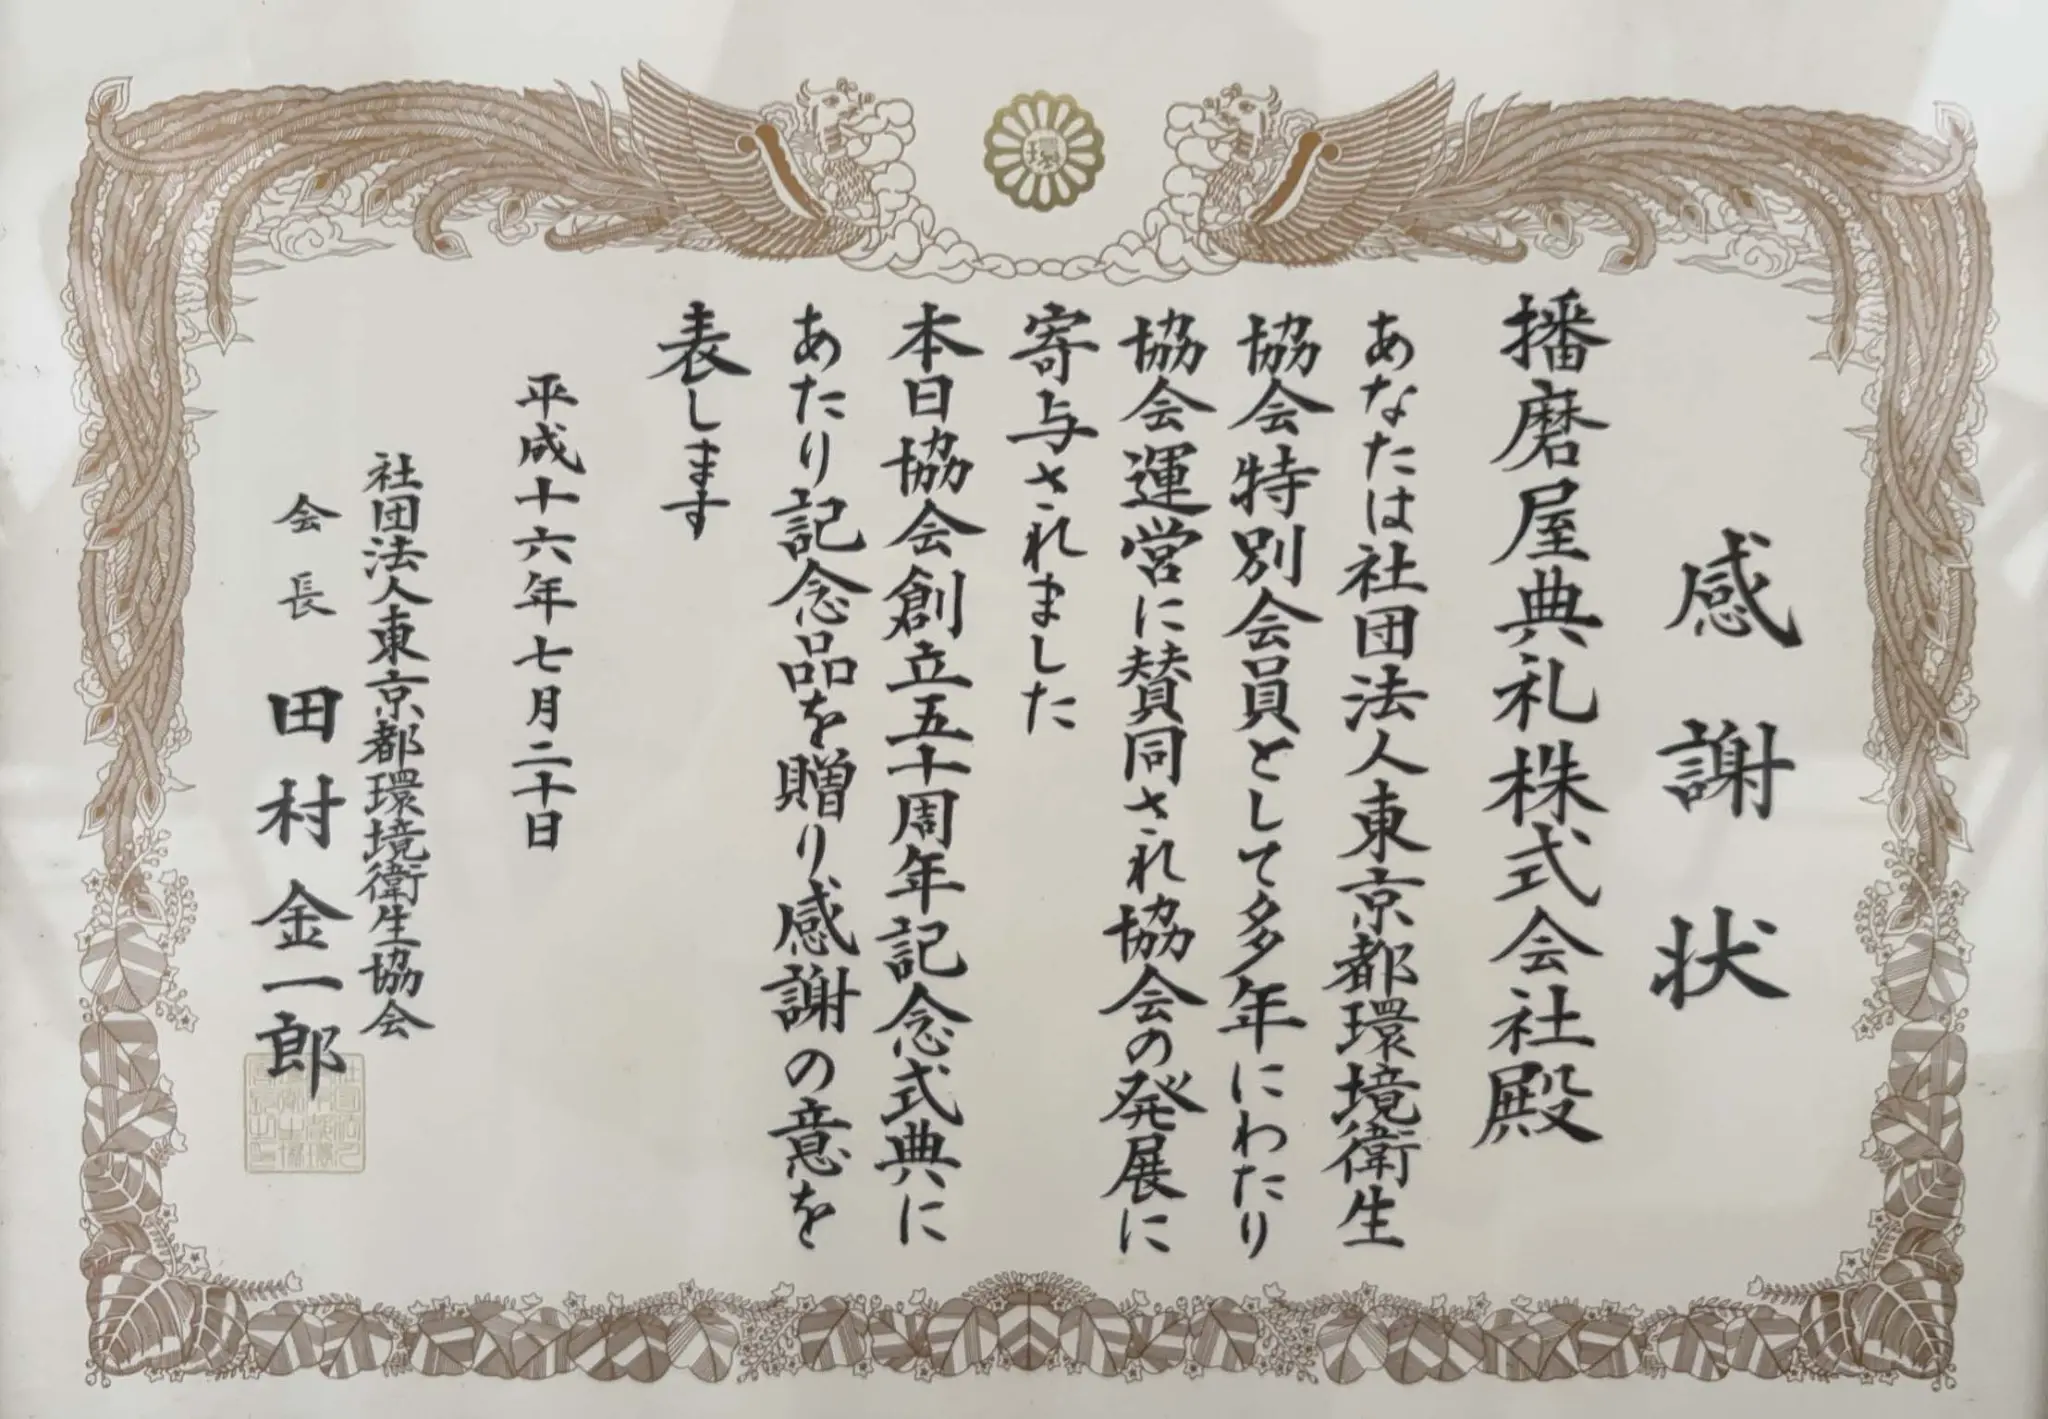 環
感謝状
播磨屋典礼株式会社殿
あなたは社団法人東京都環境衛生
協会特別会員として多年にわたり
協会運営に賛同され協会の発展に
寄与されました
本日協会創立五十周年記念式典に
あたり記念品を贈り感謝の意を
表します
平成十六年七月二十日
社団法人東京都環境衛生協会
会長 田村金一郎